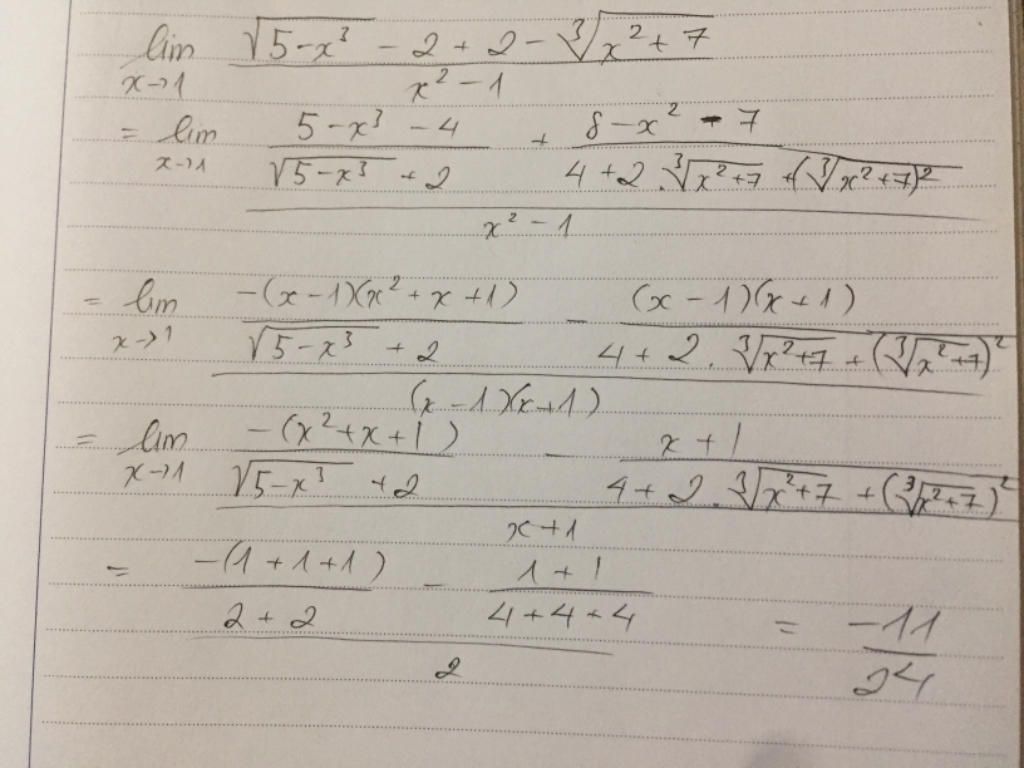 lim x→1 (√(5-x³) - 2 + 2 - ∛(x²+7)) / (x² - 1)
= lim x→1 ((5-x³-4)/(√(5-x³) + 2) + (8-x²-7)/(4+2.∛(x²+7) + (∛(x²+7))²)) / (x² - 1)
= lim x→1 (-(x-1)(x²+x+1)/(√(5-x³) + 2) - (x-1)(x+1)/(4+2.∛(x²+7) + (∛(x²+7))²)) / ((x-1)(x+1))
= lim x→1 (-(x²+x+1)/(√(5-x³) + 2) - (x+1)/(4+2.∛(x²+7) + (∛(x²+7))²)) / (x+1)
= (-(1+1+1)/(2+2) - (1+1)/(4+4+4)) / 2 = -11/24